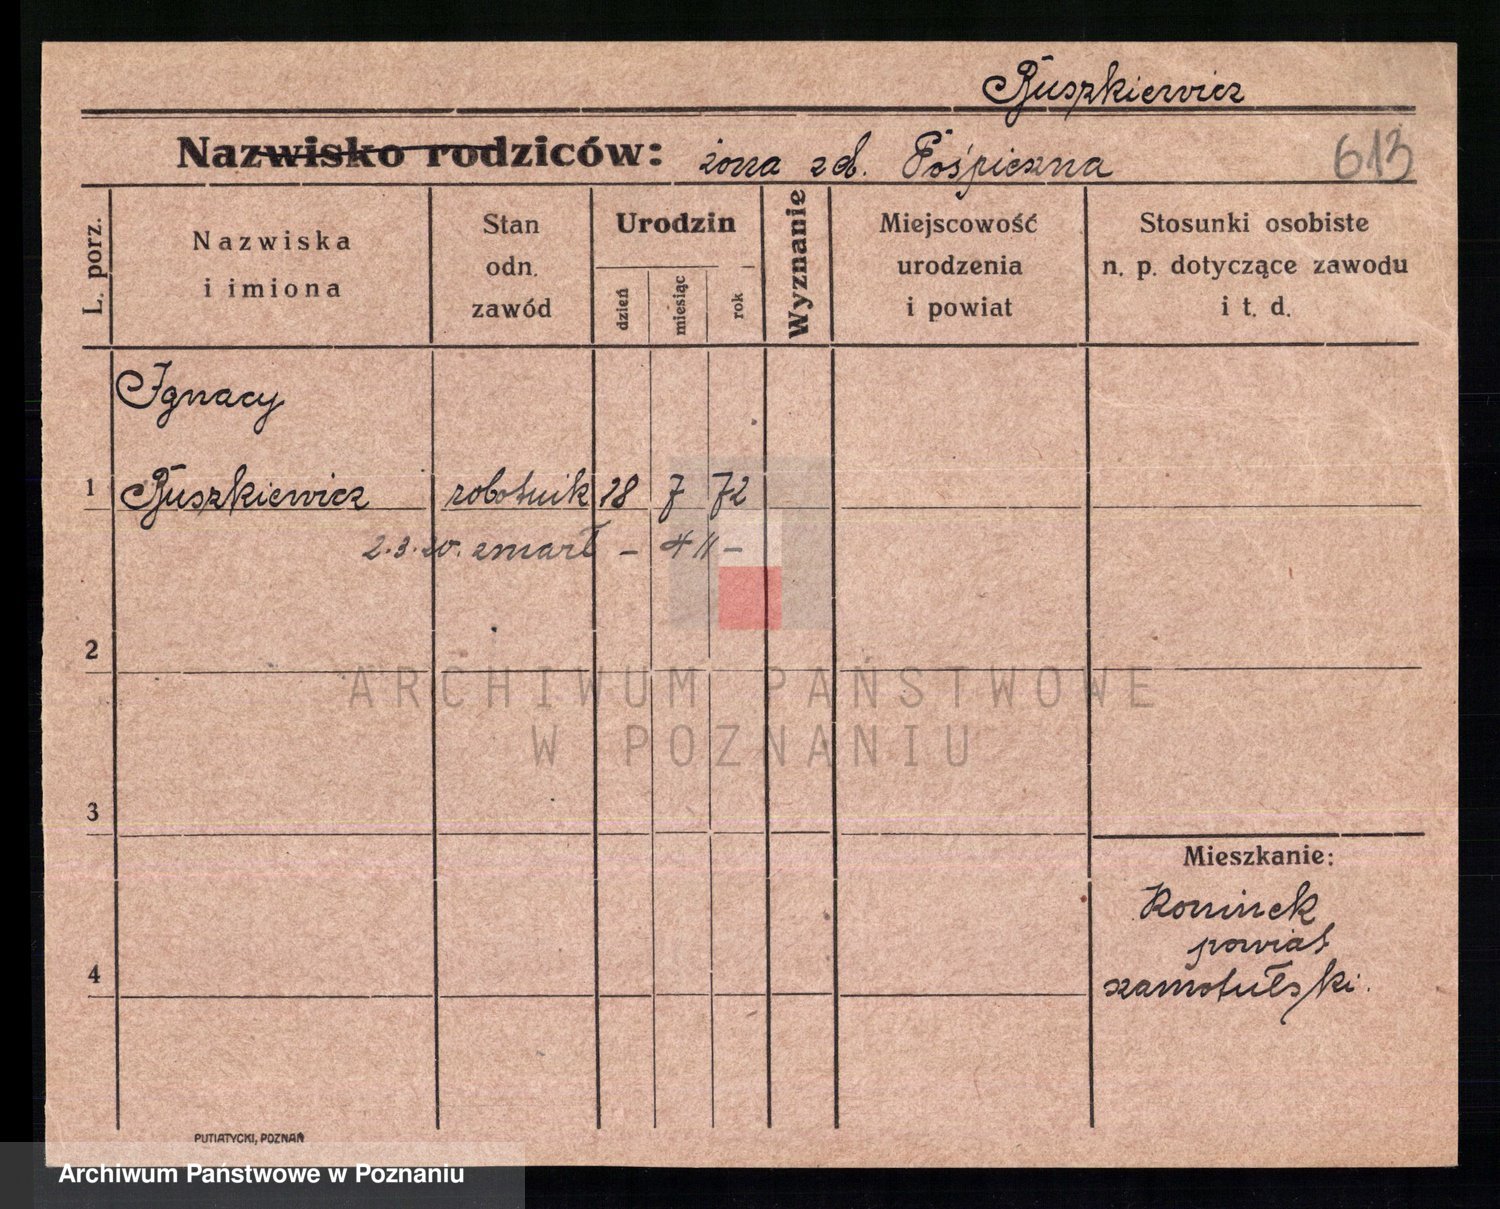 Ruszkiewicz
Nazwisko rodziców: żona zd. Pośpieszna 613
L. porz.
Nazwiska
i imiona
Stan
odn.
zawód
Urodzin
dzień
miesiąc
rok
Wyznanie
Miejscowość
urodzenia
i powiat
Stosunki osobiste
n. p. dotyczące zawodu
i t. d.
Ignacy
1 Ruszkiewicz robotnik 28 7 72
2.3.20. zmarł
2
ARCHIWUM PAŃSTWOWE
W POZNANIU
3
Mieszkanie:
Koninek
powiat
szamotulski.
4
PUTIATYCKI, POZNAŃ
Archiwum Państwowe w Poznaniu